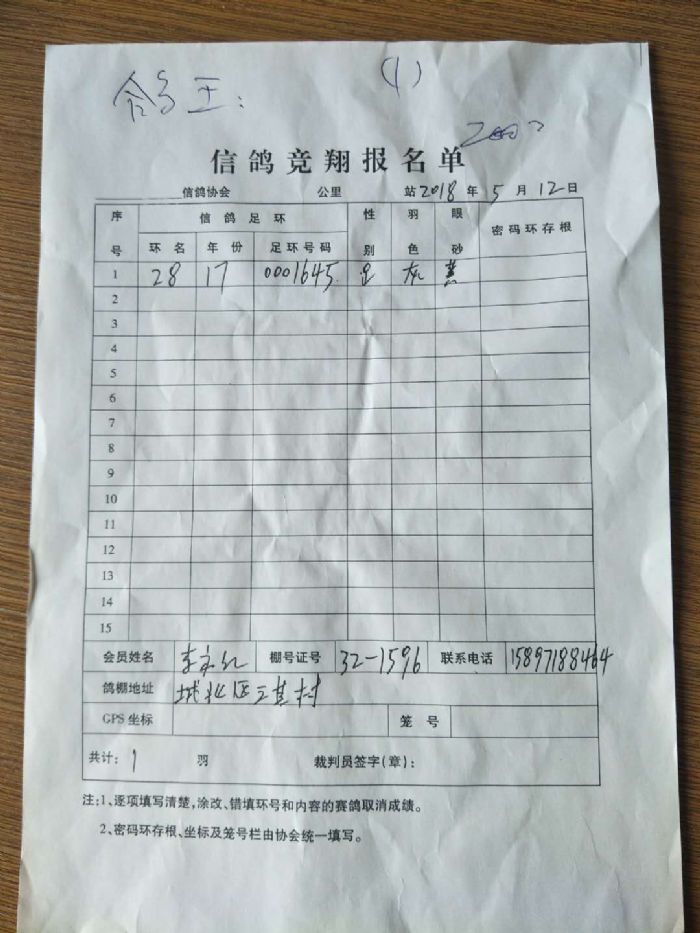 (1)
鸽王:
信鸽竞翔报名单
信鸽协会 公里 站 2018 年 5 月 12 日
序号 信鸽足环 性别 羽色 眼砂 密码环存根
环名 年份 足环号码
1 28 17 0001645 灰 黄
2
3
4
5
6
7
8
9
10
11
12
13
14
15
会员姓名 李 红 棚号证号 32-1596 联系电话 15897188464
鸽棚地址 城北区三其村
GPS坐标 笼号
共计: 1 羽 裁判员签字(章):
注:1、逐项填写清楚,涂改、错填环号和内容的赛鸽取消成绩。
2、密码环存根、坐标及笼号栏由协会统一填写。